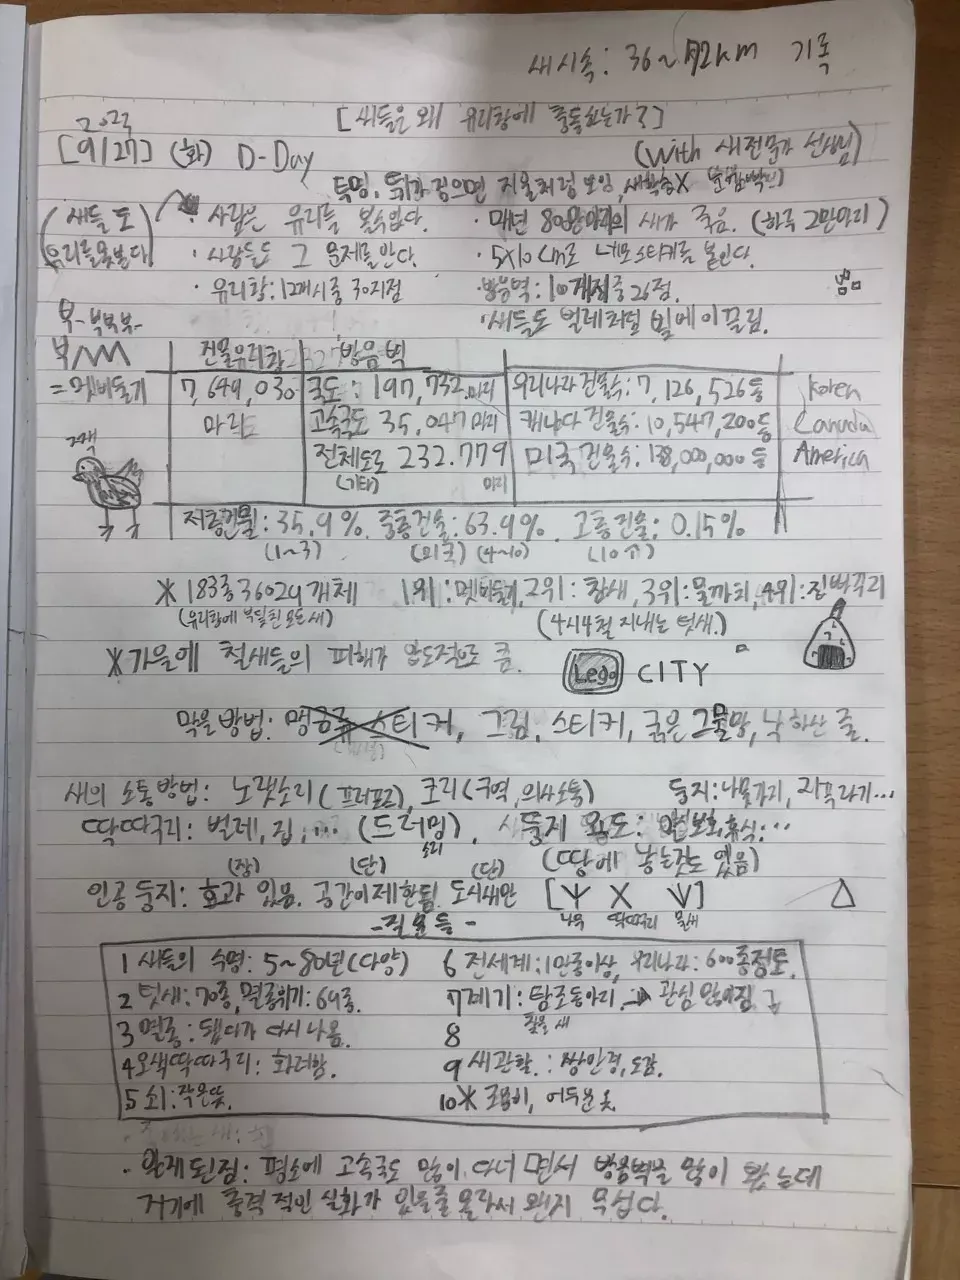 새 시속: 36~72km 기록
[새들은 왜 유리창에 충돌하는가?]
2023
[9/27] (화) D-Day (with 새전문가 선생님)
투명, 뒤가 있으면 거울처럼 보임, 새학습X
(새들도 유리를 못본다)
· 사람은 유리를 볼수있다.
· 매년 800만마리의 새가 죽음. (하루 2만마리)
· 사람들도 그 문제를 안다.
· 5X10cm로 네모 스티커를 붙인다.
· 유리창: 12개시중 30지점
· 방음벽: 10개시중 26점.
· 새들도 벌레처럼 빛에 이끌림.
부-부부부-
부
=멧비둘기
건물유리창 방음벽
7,649,030 마리
국도: 197,732마리
고속국도 35,047마리
전체도로 232.779 마리
(기타)
우리나라 건물수: 7,126,526동 Korea
캐나다 건물수: 10,547,200동 Canada
미국 건물수: 138,000,000동 America
저층건물: 35.9%. 중층건물: 63.9%. 고층건물: 0.15%
(1~3) (미국) (4~10) (10↑)
※ 183종 36024개체 1위: 멧비둘기, 2위: 참새, 3위: 물까치, 4위: 직박구리
(유리창에 부딪친 모든 새) (4시4철 지내는 텃새.)
※ 가을에 철새들의 피해가 압도적으로 큼.
Lego CITY
막을 방법: 맹금류 스티커, 그림, 스티커, 굵은 그물망, 낙하산 줄.
새의 소통방법: 노랫소리(프러포즈), 크리(구역, 의사소통) 둥지: 나뭇가지, 지푸라기...
딱따구리: 벌레, 집, ... (드러밍), 둥지 용도: 알보호, 휴식...
소리
(땅에 낳는것도 있음)
(장) (단) (단)
인공 둥지: 효과 있음. 공간이제한됨. 도시새만 [Ψ X ]
딱따구리 물새
-질문들-
1 새들의 수명: 5~80년(다양)
2 텃새: 70종, 멸종위기: 69종.
3 멸종: 됐다가 다시 나옴.
4 오색딱따구리: 화려함.
5 쇠: 작은뜻.
6 전세계: 1만종이상, 우리나라: 600종정도.
7 계기: 탐조동아리. → 관심 많아짐
8
9 새관찰.: 쌍안경, 도감.
10※ 조용히, 어두운 옷.
· 알게된점: 평소에 고속국도 많이 다녀면서 방음벽을 많이 봤는데
거기에 충격적인 실화가 있을줄 몰라서 왠지 무섭다.